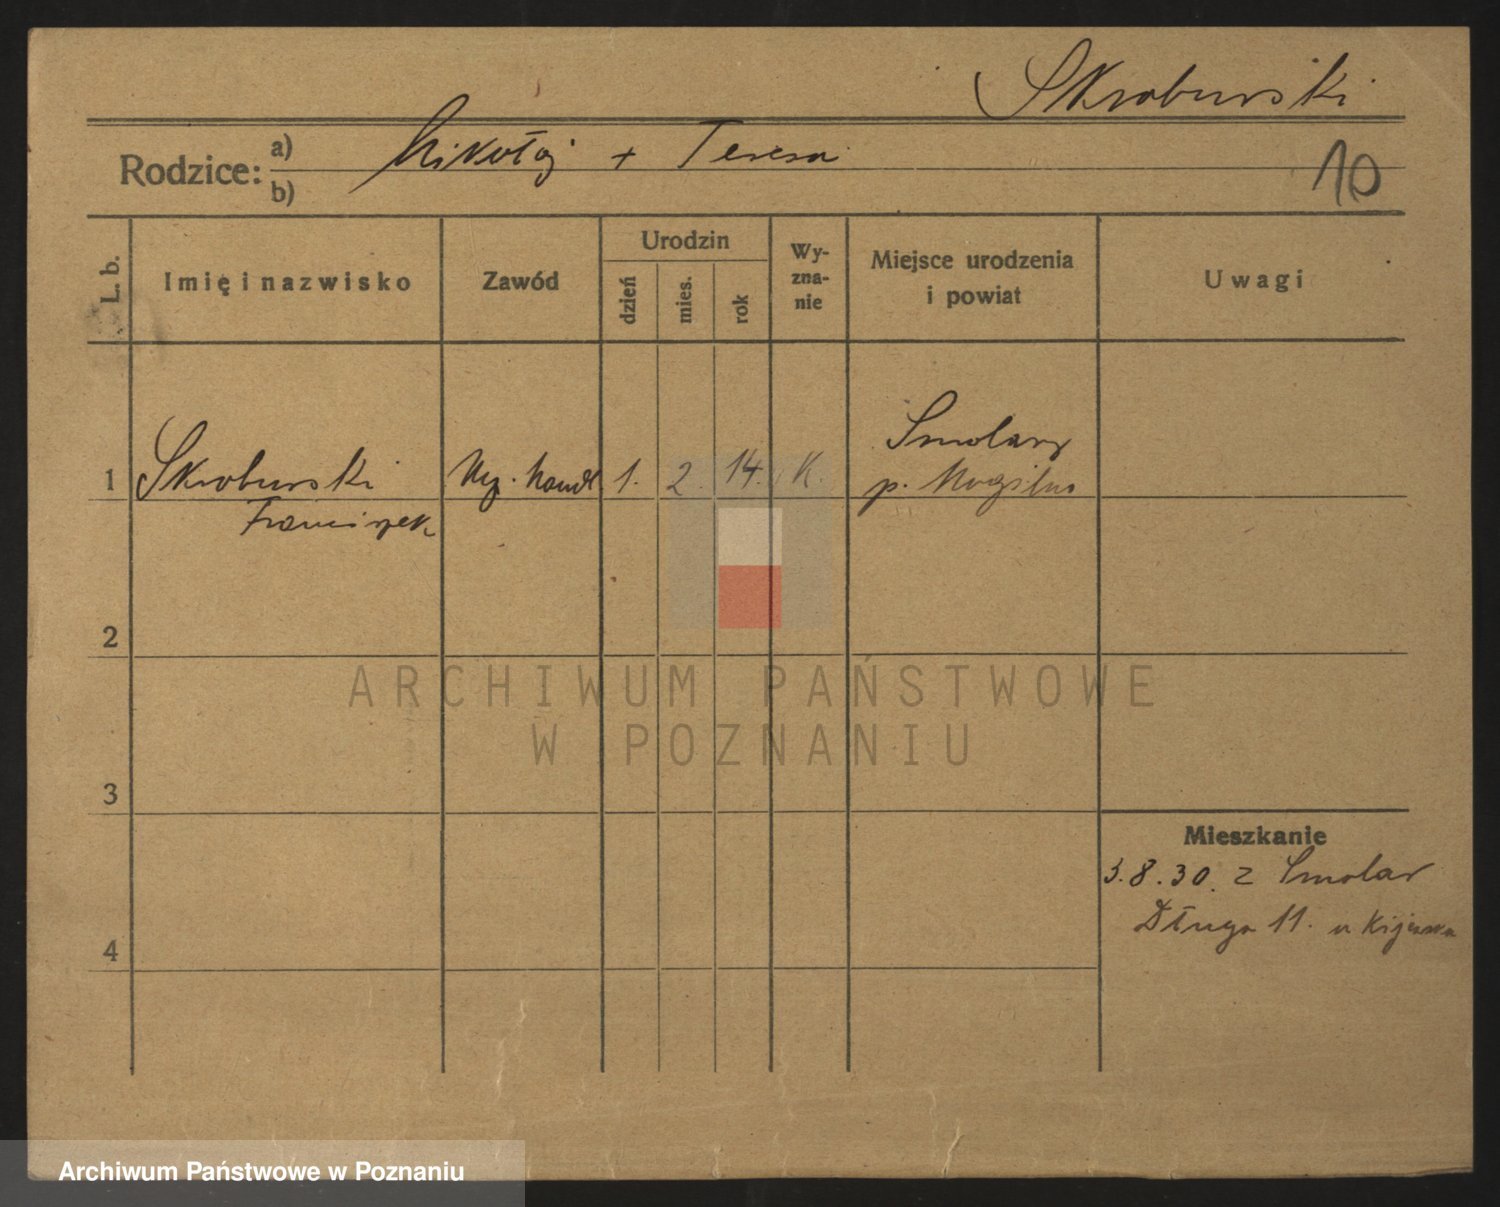 Skroburski
Rodzice: a) Mikołaj + Teresa
b)
10
L. b.
Imię i nazwisko
Zawód
Urodzin
dzień
mies.
rok
Wy-
zna-
nie
Miejsce urodzenia
i powiat
Uwagi
1 Skroburski 1. 2. 14. K. Smolary
Franciszek
p. Mogilno
2
3
4
Mieszkanie
3.8.30. z Smolar
Długa 11. u
ARCHIWUM PAŃSTWOWE
W POZNANIU
Archiwum Państwowe w Poznaniu